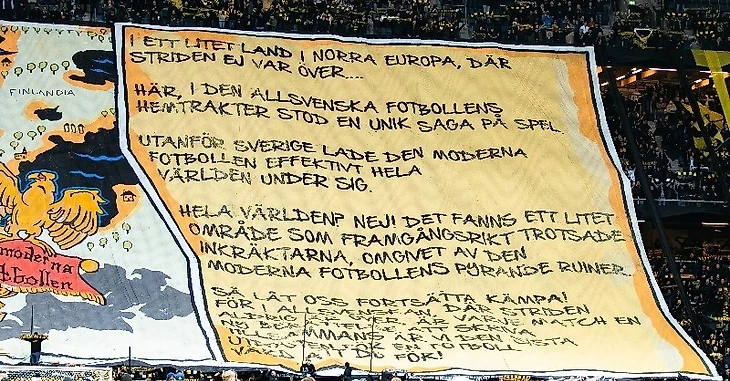 FINLANDIA
moderna
bollen
I ETT LITET LAND I NORRA EUROPA, DÄR
STRIDEN EJ VAR ÖVER....
HÄR, I DEN ALLSVENSKA FOTBOLLENS
HEMTRAKTER STOD EN UNIK SAGA PÅ SPEL.
UTANFÖR SVERIGE LADE DEN MODERNA
FOTBOLLEN EFFEKTIVT HELA
VÄRLDEN UNDER SIG.
HELA VÄRLDEN? NEJ! DET FANNS ETT LITET
OMRÅDE SOM FRAMGÅNGSRIKT TROTSADE
INKRÄKTARNA, OMGIVET AV DEN
MODERNA FOTBOLLENS PYRANDE RUINER.
SÅ LÅT OSS FORTSÄTTA KÄMPA!
FÖR I ALLSVENSKAN, DÄR STRIDEN
ALDRIG ÄR VARJE MATCH EN
NY BERÄTTELSE ATT SKRIVA
TILLSAMMANS ÄR VI DEN SISTA
FOTBOLL
VÄRD ATT DÖ FÖR!